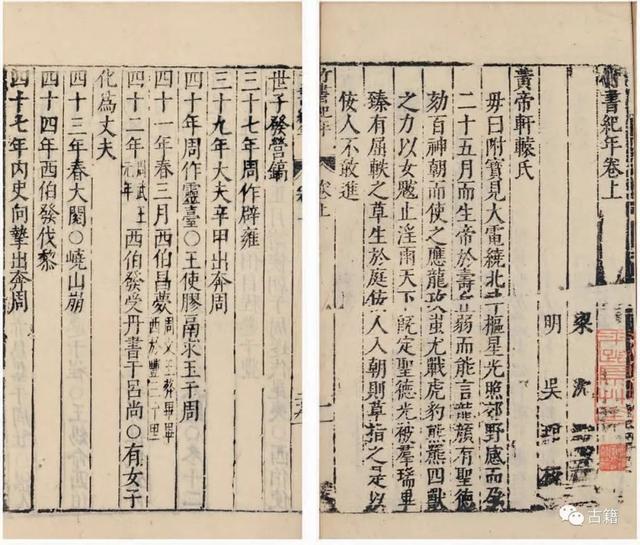 竹書紀年卷上
梁 沈
明 吳
黃帝軒轅氏
母曰附寶見大電繞北斗樞星光照郊野感而孕
二十五月而生帝於壽丘弱而能言龍顏有聖德
劾百神朝而使之應龍攻蚩尤戰虎豹熊羆四獸
之力以女魃止淫雨天下既定聖德光被羣瑞畢
臻有屈軼之草生於庭佞人入朝則草指之是以
佞人不敢進
竹書紀年 卷上 一
世子發營鎬
三十七年周作辟雍
三十九年大夫辛甲出奔周
四十年周作靈臺○王使膠鬲求玉于周
四十一年春三月西伯昌薨周文王葬畢畢西於豐三十里
四十二年周武王元年西伯發受丹書于呂尚○有女子
化為丈夫
四十三年春大閱○嶢山崩
四十四年西伯發伐黎
四十七年內史向摯出奔周
古籍